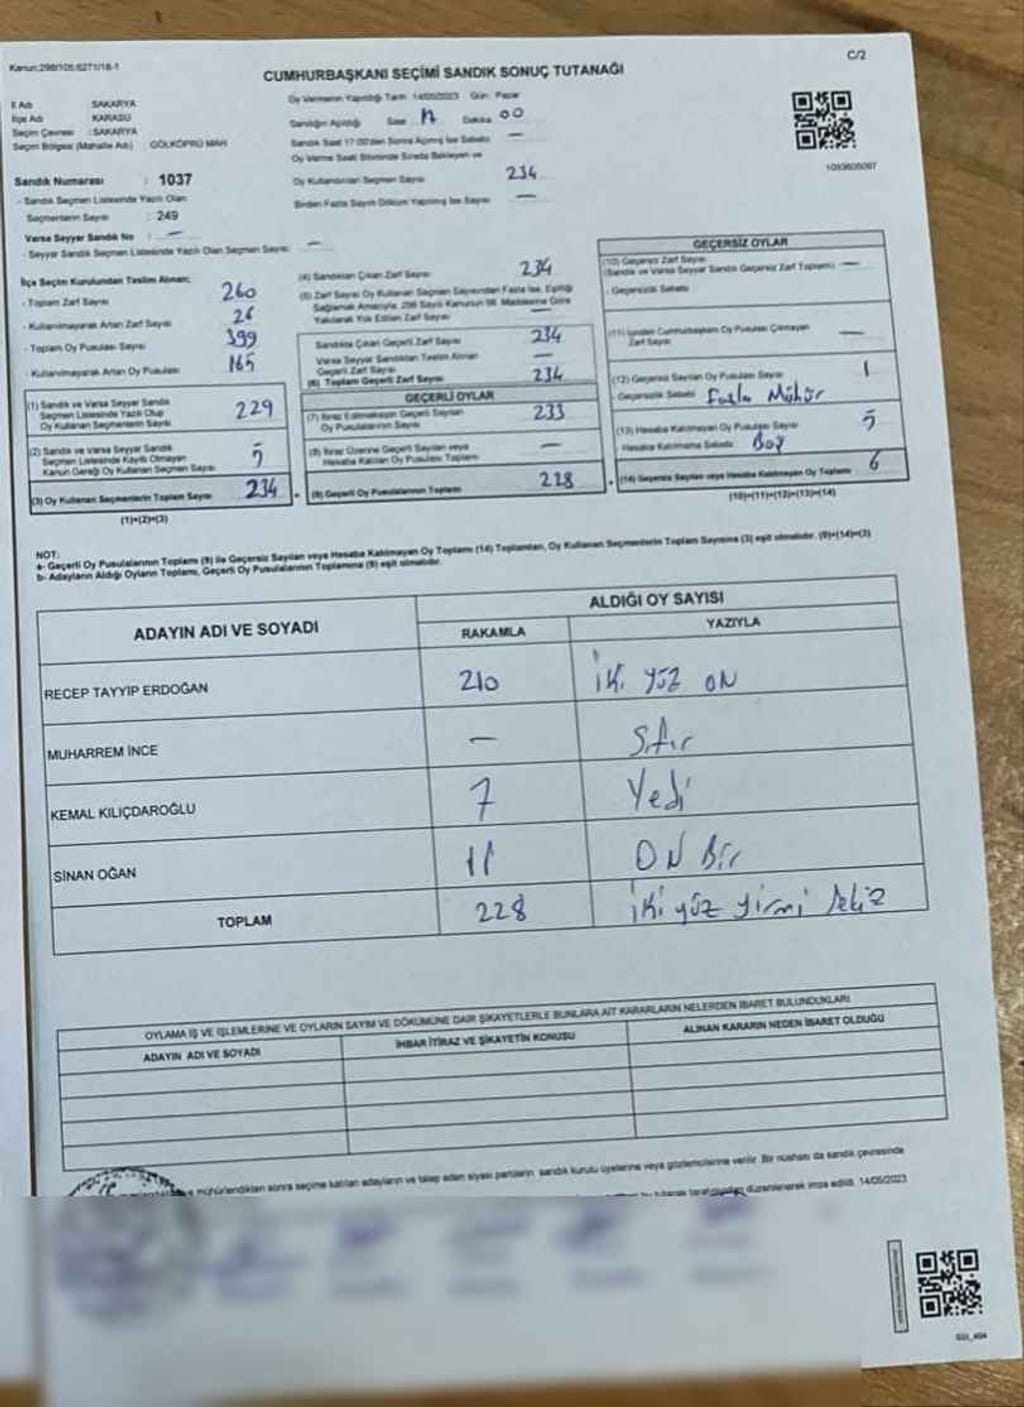 Kanun:298/105;6271/18-1
C/2
CUMHURBAŞKANI SEÇİMİ SANDIK SONUÇ TUTANAĞI
İl Adı SAKARYA
İlçe Adı KARASU
Seçim Çevresi : SAKARYA
Seçim Bölgesi (Mahalle Adı) GÖLKÖPRÜ MAH
Sandık Numarası : 1037
- Sandık Seçmen Listesinde Yazılı Olan
Seçmenlerin Sayısı : 249
Varsa Seyyar Sandık No : —
- Seyyar Sandık Seçmen Listesinde Yazılı Olan Seçmen Sayısı —
Oy Vermenin Yapıldığı Tarih 14/05/2023 Gün: Pazar
Sandığın Açıldığı Saat 17 Dakika 00
Sandık Saat 17:00'den Sonra Açılmış İse Sebebi —
Oy Verme Saati Bitiminde Sırada Bekleyen ve
Oy Kullandırılan Seçmen Sayısı 234
Birden Fazla Sayım Döküm Yapılmış İse Sayısı —
İlçe Seçim Kurulundan Teslim Alınan;
- Toplam Zarf Sayısı 260
- Kullanılmayarak Artan Zarf Sayısı 26
- Toplam Oy Pusulası Sayısı 399
- Kullanılmayarak Artan Oy Pusulası 165
(1) Sandık ve Varsa Seyyar Sandık
Seçmen Listesinde Yazılı Olup
Oy Kullanan Seçmenlerin Sayısı 229
(2) Sandık ve Varsa Seyyar Sandık
Seçmen Listesinde Kayıtlı Olmayan
Kanun Gereği Oy Kullanan Seçmen Sayısı 5
(3) Oy Kullanan Seçmenlerin Toplam Sayısı 234
(1)+(2)=(3)
(4) Sandıktan Çıkan Zarf Sayısı 234
(5) Zarf Sayısı Oy Kullanan Seçmen Sayısından Fazla İse, Eşitliği
Sağlamak Amacıyla, 298 Sayılı Kanunun 98. Maddesine Göre
Yakılarak Yok Edilen Zarf Sayısı —
Sandıkta Çıkan Geçerli Zarf Sayısı 234
Varsa Seyyar Sandıktan Teslim Alınan
Geçerli Zarf Sayısı —
(6) Toplam Geçerli Zarf Sayısı 234
GEÇERLİ OYLAR
(7) İtiraz Edilmeksizin Geçerli Sayılan
Oy Pusulalarının Sayısı 233
(8) İtiraz Üzerine Geçerli Sayılan veya
Hesaba Katılan Oy Pusulası Toplamı —
(9) Geçerli Oy Pusulalarının Toplamı 228
GEÇERSİZ OYLAR
(10) Geçersiz Zarf Sayısı
(Sandık ve Varsa Seyyar Sandık Geçersiz Zarf Toplamı) —
- Geçersizlik Sebebi
(11) İçinden Cumhurbaşkanı Oy Pusulası Çıkmayan
Zarf Sayısı —
(12) Geçersiz Sayılan Oy Pusulası Sayısı 1
- Geçersizlik Sebebi Fazla Mühür
(13) Hesaba Katılmayan Oy Pusulası Sayısı 5
Hesaba Katılmama Sebebi Boş
(14) Geçersiz Sayılan veya Hesaba Katılmayan Oy Toplamı 6
(10)+(11)+(12)+(13)=(14)
NOT:
a- Geçerli Oy Pusulalarının Toplamı (9) ile Geçersiz Sayılan veya Hesaba Katılmayan Oy Toplamı (14) Toplamları, Oy Kullanan Seçmenlerin Toplam Sayısına (3) eşit olmalıdır. (9)+(14)=(3)
b- Adayların Aldığı Oyların Toplamı, Geçerli Oy Pusulalarının Toplamına (9) eşit olmalıdır.
ADAYIN ADI VE SOYADI
ALDIĞI OY SAYISI
RAKAMLA YAZIYLA
RECEP TAYYİP ERDOĞAN 210 İki yüz ON
MUHARREM İNCE — Sıfır
KEMAL KILIÇDAROĞLU 7 Yedi
SİNAN OĞAN 11 ON Bir
TOPLAM 228 İki yüz yirmi sekiz
OYLAMA İŞ VE İŞLEMLERİNE VE OYLARIN SAYIM VE DÖKÜMÜNE DAİR ŞİKAYETLERLE BUNLARA AİT KARARLARIN NELERDEN İBARET BULUNDUKLARI
ADAYIN ADI VE SOYADI İHBAR İTİRAZ VE ŞİKAYETİN KONUSU ALINAN KARARIN NEDEN İBARET OLDUĞU
mühürlendikten sonra seçime katılan adayların ve talep eden siyasi partilerin sandık kurulu üyelerine veya gözlemcilerine verilir. Bir nüshası da sandık çevresinde
düzenlenerek imza edildi. 14/05/2023